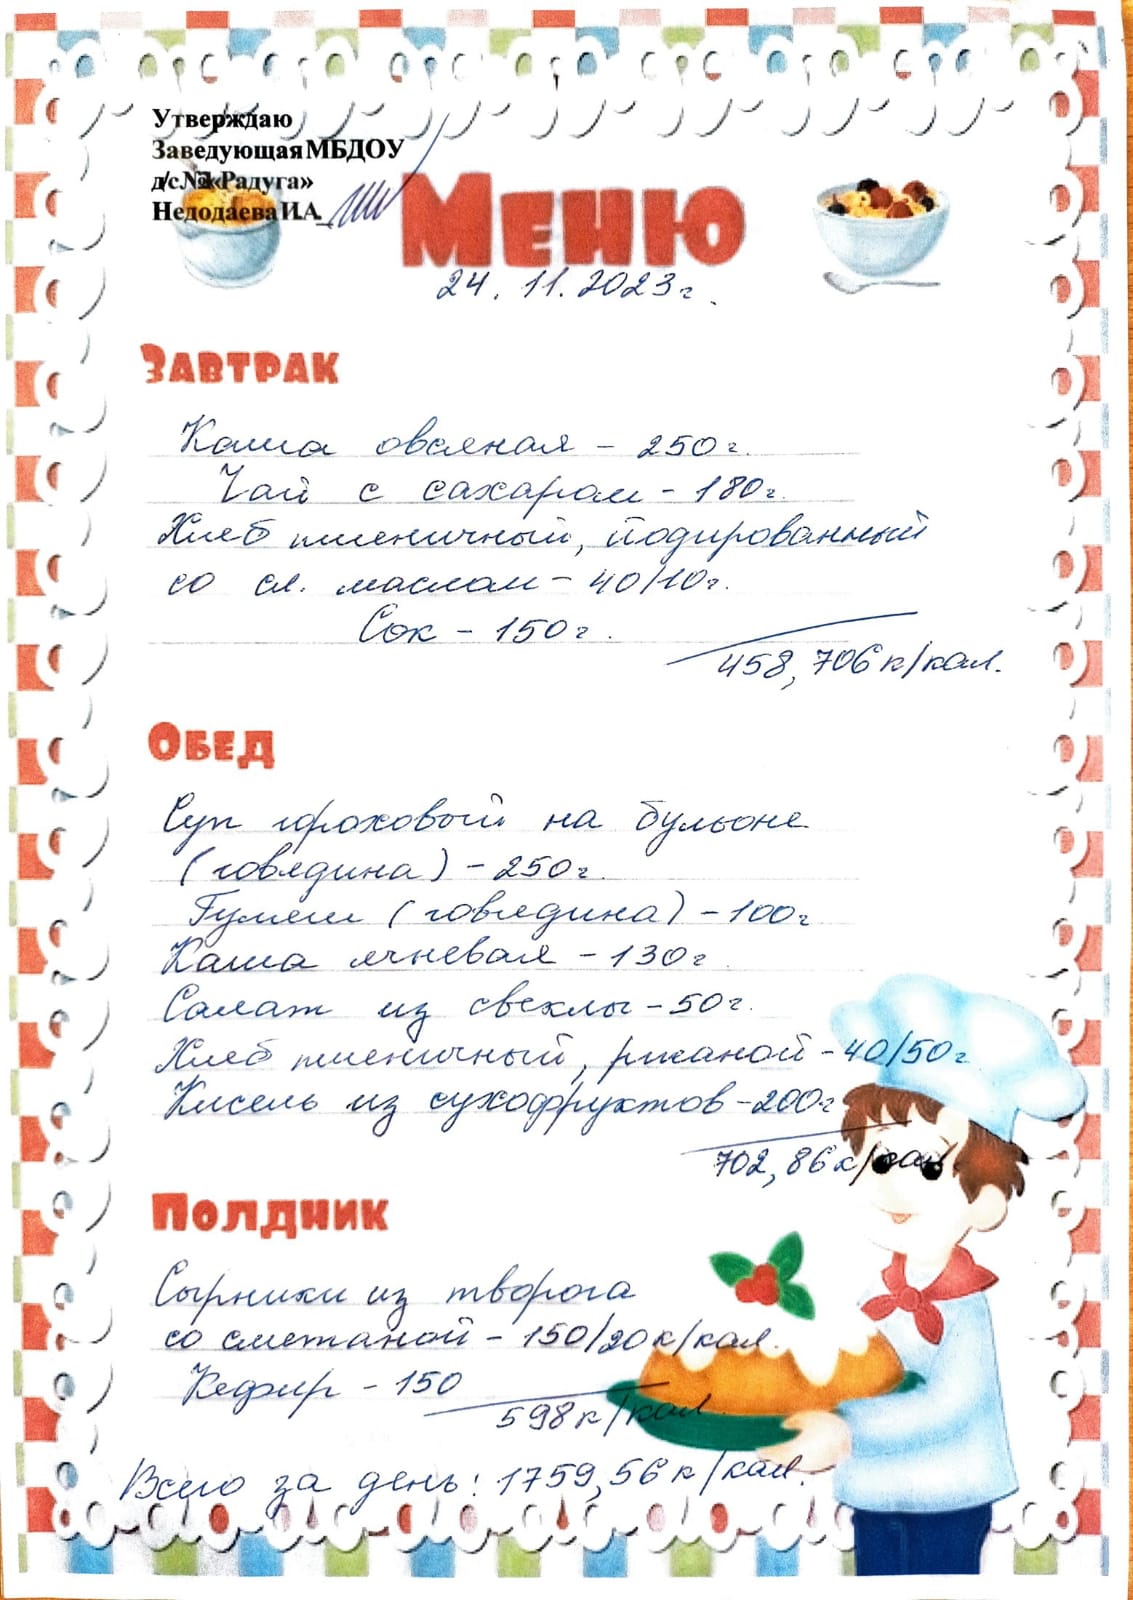 Утверждаю
Заведующая МБДОУ
д/с №2 «Радуга»
Недодаева И.А.
Меню
24.11.2023г.
Завтрак
Каша овсяная - 250г.
Чай с сахаром - 180г.
Хлеб пшеничный, йодированный
со сл. маслом - 40/10г.
Сок - 150г.
458,706 к/кал.
Обед
Суп гороховый на бульоне
(говядина) - 250г.
Гуляш (говядина) - 100г
Каша ячневая - 130г.
Салат из свеклы - 50г.
Хлеб пшеничный, ржаной - 40/50г.
Кисель из сухофруктов - 200г
702,86 к/кал.
Полдник
Сырники из творога
со сметаной - 150/20 к/кал.
Кефир - 150
598 к/кал.
Всего за день: 1759,56 к/кал.